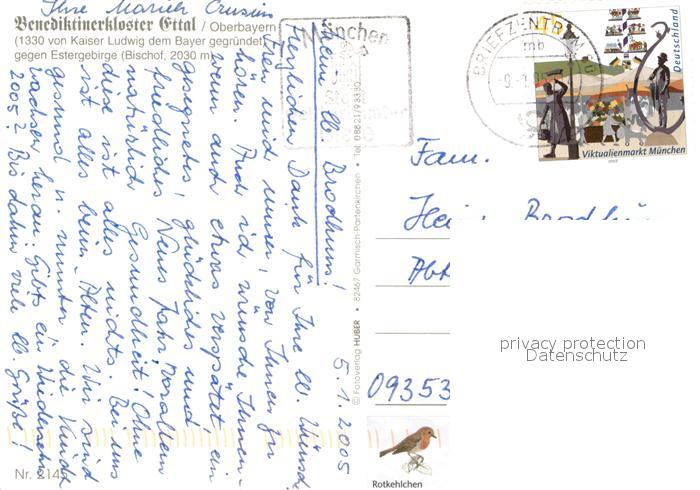 Benediktinerkloster Ettal / Oberbayern
(1330 von Kaiser Ludwig dem Bayer gegründet)
gegen Estergebirge (Bischof, 2030 m)
Nr. 2145
5.1.2005
Meine lb. Brodhuns!
herzlichen Dank für Ihre lb. Wünsche.
und immer, von Ihnen zu
hören. Und so wünsche Ihnen
wenn auch etwas verspätet ein
gesegnetes, glückliches und
friedliches Neues Jahr. Vor allem
natürlich Gesundheit! Ohne
diese ist alles nichts. Bei uns
ist alles beim Alten. Wir sind
gesund u. munter die Kinder
wachsen heran. Gibt's ein Wiedersehn
2005? Bis dahin viele lb. Grüße!
Ihre
© Fotoverlag HUBER • 82467 Garmisch-Partenkirchen • Tel. 08821/93330
München
BRIEFZENTRUM
mb
Deutschland
Viktualienmarkt München
2003
Fam.
09353
privacy protection
Datenschutz
Rotkehlchen